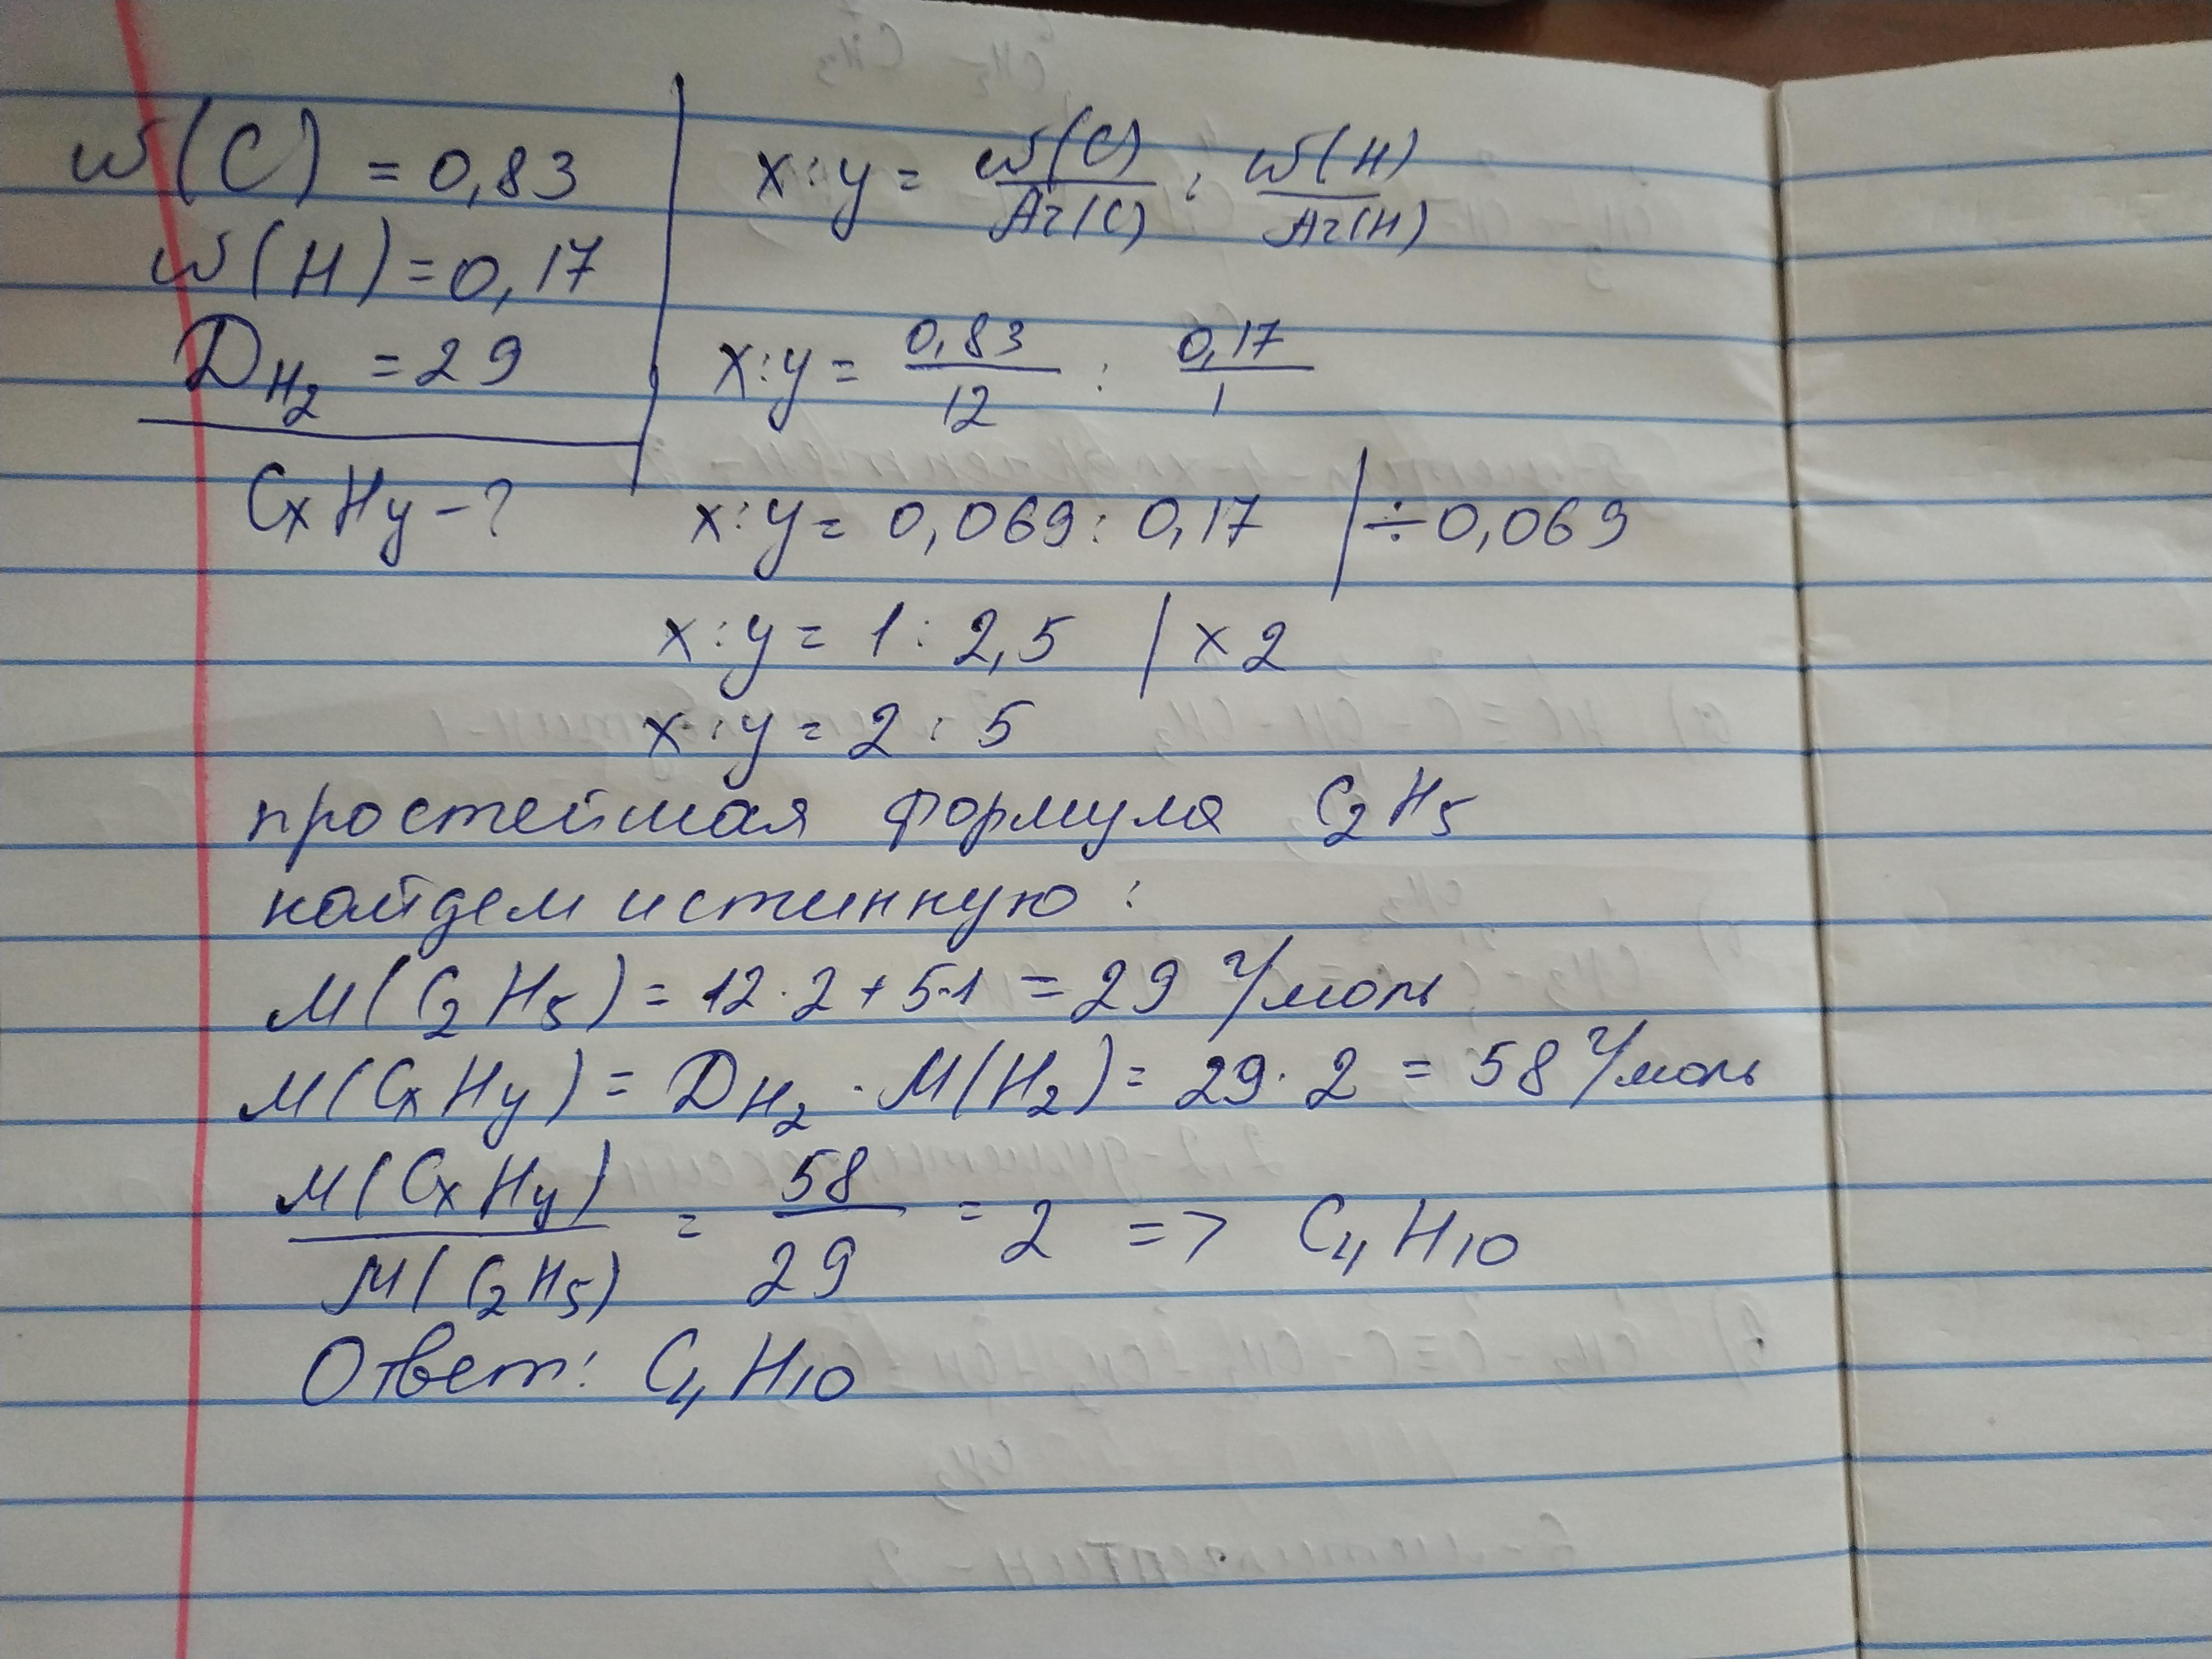 w(C) = 0,83
w(H) = 0,17
D_H₂ = 29
CxHy - ?
x:y = w(C)/Ar(C) : w(H)/Ar(H)
x:y = 0,83/12 : 0,17/1
x:y = 0,069 : 0,17 | ÷0,069
x:y = 1 : 2,5 | x2
x:y = 2 : 5
простейшая формула C₂H₅
найдем истинную:
M(C₂H₅) = 12·2+5·1 = 29 г/моль
M(CxHy) = D_H₂ · M(H₂) = 29·2 = 58 г/моль
M(CxHy)/M(C₂H₅) = 58/29 = 2 => C₄H₁₀
Ответ: C₄H₁₀